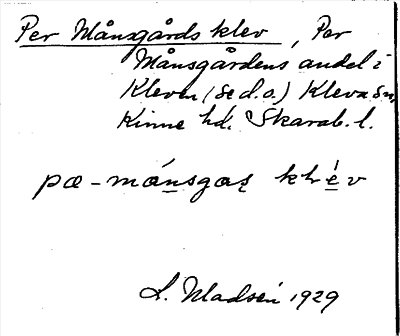 Per Månsgårds klev, Per
Månsgårdens andel i
Kleven (se d.o.) Kleva sn,
Kinne hd. Skarab. l.
pæ - mánsgaṣ klév
L. Madsén 1929